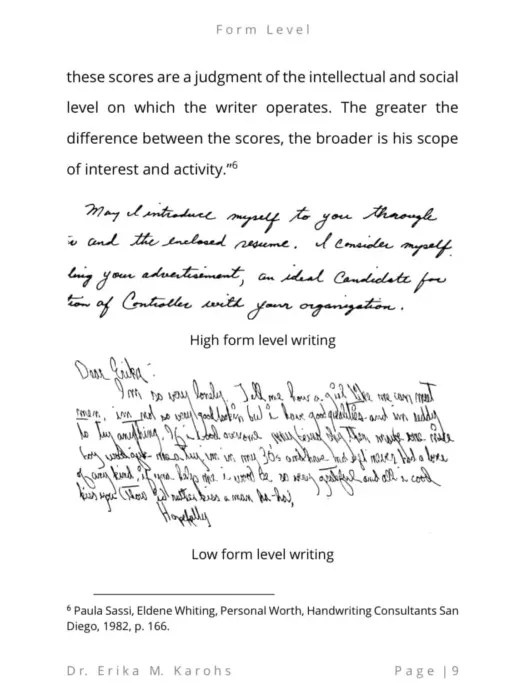 Form Level
these scores are a judgment of the intellectual and social
level on which the writer operates. The greater the
difference between the scores, the broader is his scope
of interest and activity."6
May I introduce myself to you through
and the enclosed resume. I consider myself,
ing your advertisement, an ideal Candidate for
tion of Controller with your organization.
High form level writing
Dear Erika:
I'm so very lonely. Tell me how a girl like me can meet
men. im not so very good lookin but i have good qualities and im reddy
to try anything. If i
boy my 30s and have
of any kind, if you help me i wood be so very grateful and all i cood
kiss you! (Thow I'd rather kiss a man, ha-ha),
Hopefully
Low form level writing
6 Paula Sassi, Eldene Whiting, Personal Worth, Handwriting Consultants San
Diego, 1982, p. 166.
Dr. Erika M. Karohs
Page | 9